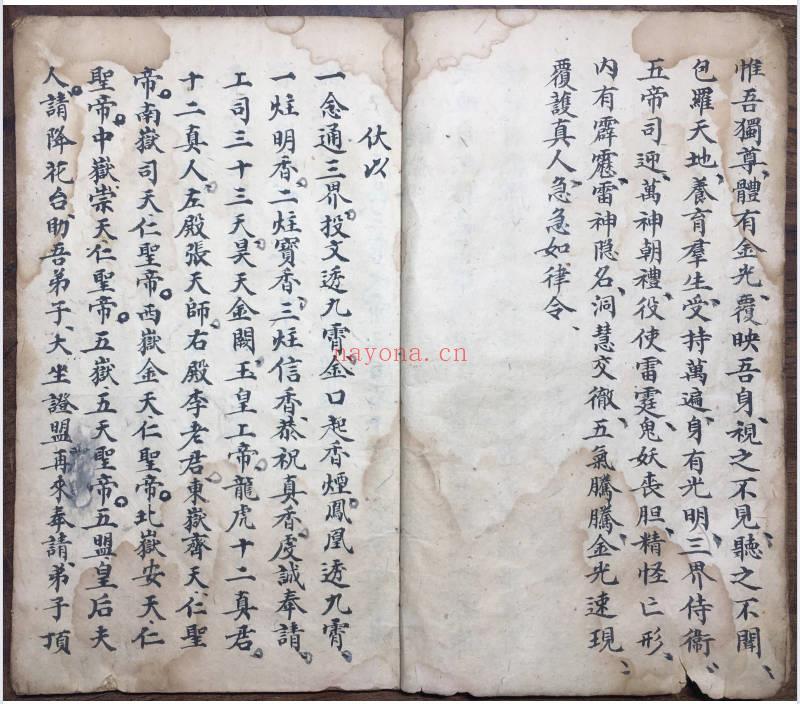 惟吾獨尊、體有金光、覆映吾身、視之不見、聽之不聞、
包羅天地、養育羣生、受持萬遍、身有光明、三界侍衞、
五帝司迎、萬神朝禮、役使雷霆、鬼妖丧胆、精怪亡形、
内有霹靂、雷神隐名、洞慧交徹、五氣騰騰、金光速現、
覆護真人、急急如律令、
伏以
一念通三界。投文透九霄。金口起香煙。鳳凰透九霄。
一炷明香。二炷寳香。三炷信香。恭祝真香。虔誠奉請。
工司三十三天昊天金闕。玉皇工帝。龍虎十二真君。
十二真人。左殿張天師。右殿李老君。東嶽齊天仁聖
帝。南嶽司天仁聖帝。西嶽金天仁聖帝。北嶽安天仁
聖帝。中嶽崇天仁聖帝。五嶽五天聖帝。五盟皇后夫
人。請降花台。助吾弟子、大坐證盟、再來奉請、弟子頂
nayona.cn